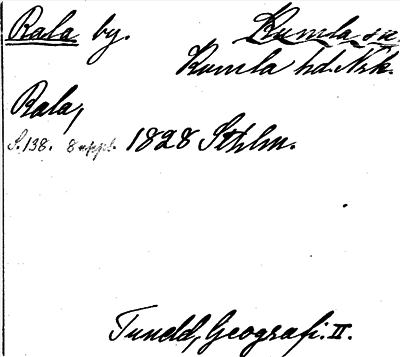 Rala by. Kumla sn.
Kumla hd. Nrk.
Rala,
S. 138. 8 uppl. 1828 Sthlm.
Tuneld, Geografi. II.